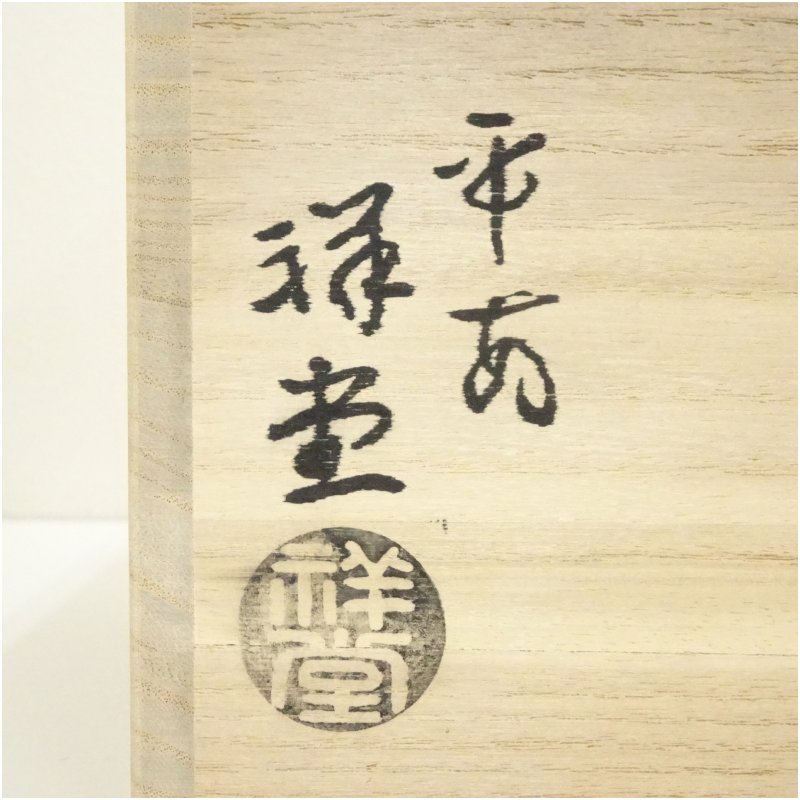 平安
祥堂
祥堂